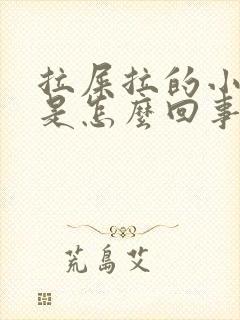 拉屎拉的小
是怎麼回事
荒島艾